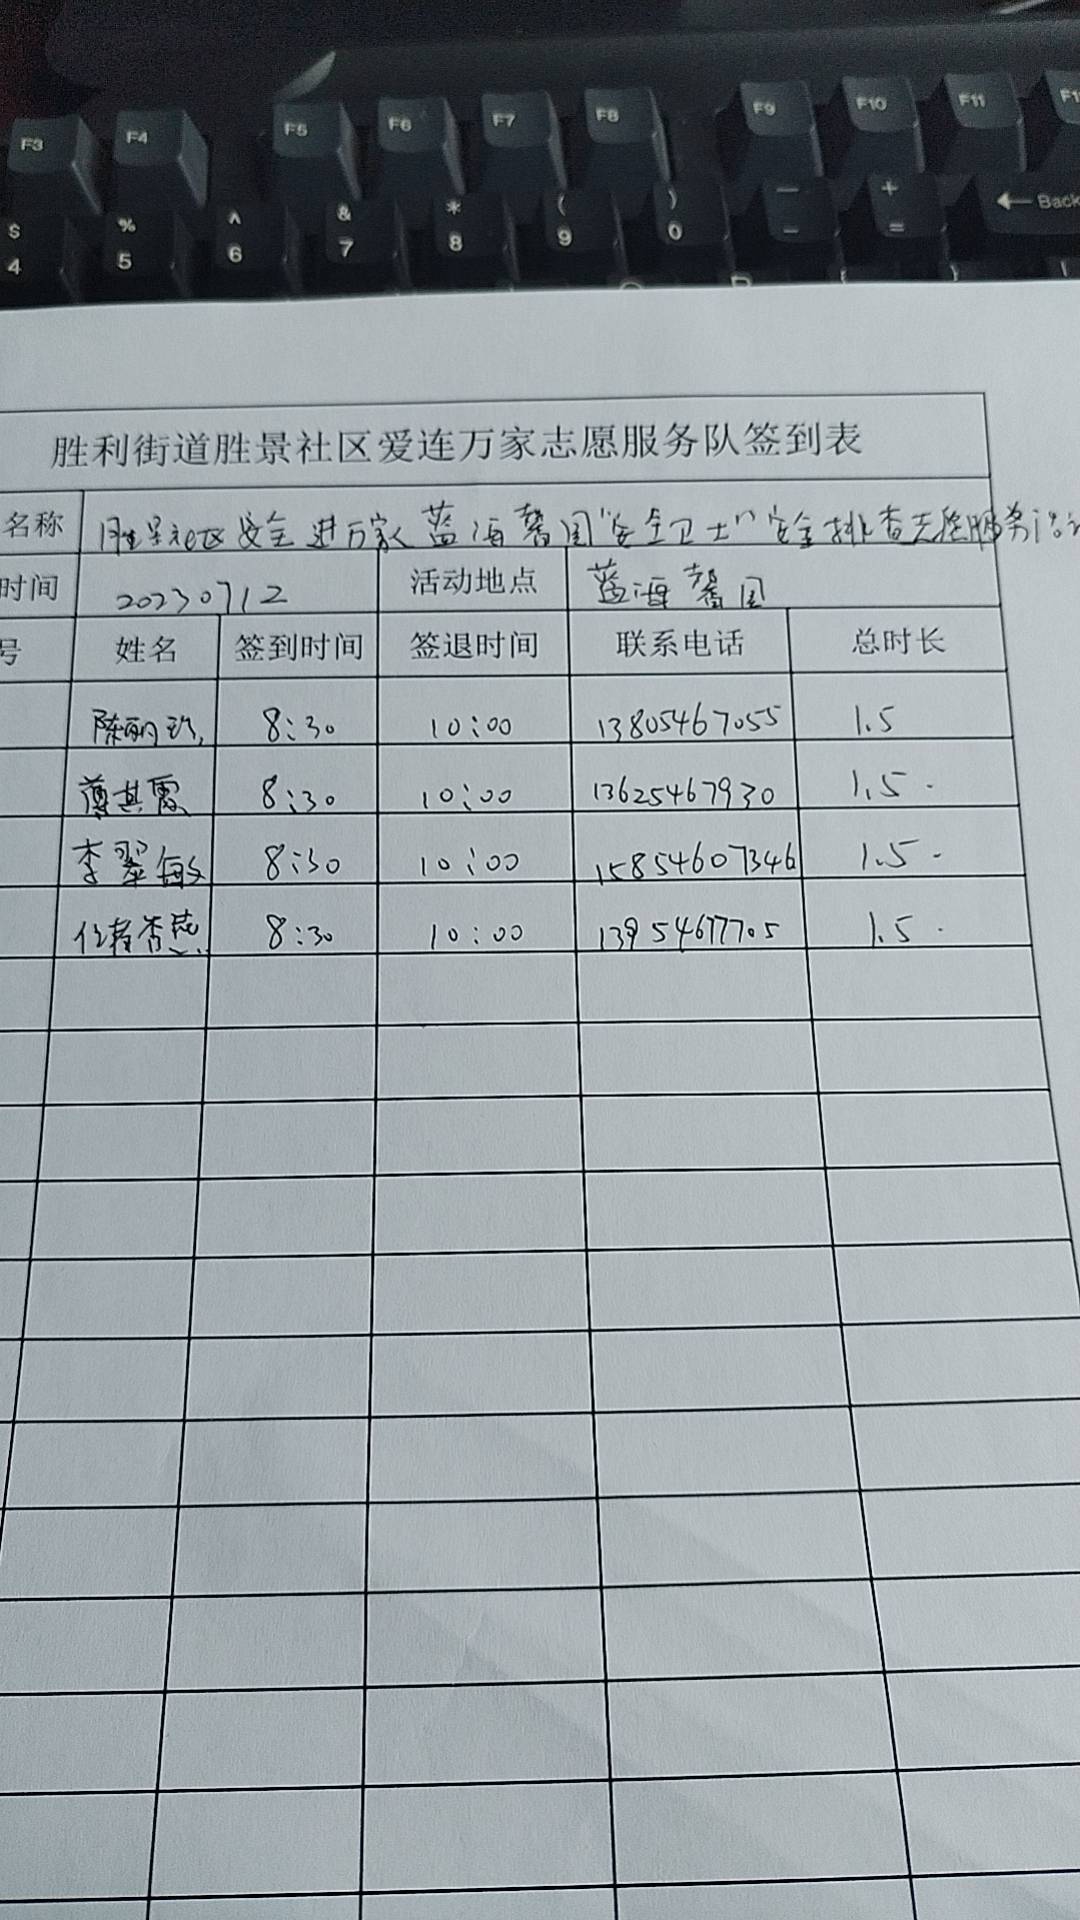 F3 F4 F5 F6 F7 F8 F9 F10 F11 F1
$ % ^ & * ( ) — +
4 5 6 7 8 9 0 - = Back
胜利街道胜景社区爱连万家志愿服务队签到表
名称 胜景社区安全进万家蓝海馨园"安全卫士"安全排查志愿服务活动
时间 20230712 活动地点 蓝海馨园
号 姓名 签到时间 签退时间 联系电话 总时长
陈丽珍 8:30 10:00 13805467055 1.5
薄其霞 8:30 10:00 13625467930 1.5
李翠敏 8:30 10:00 15854607346 1.5
8:30 10:00 13954677705 1.5